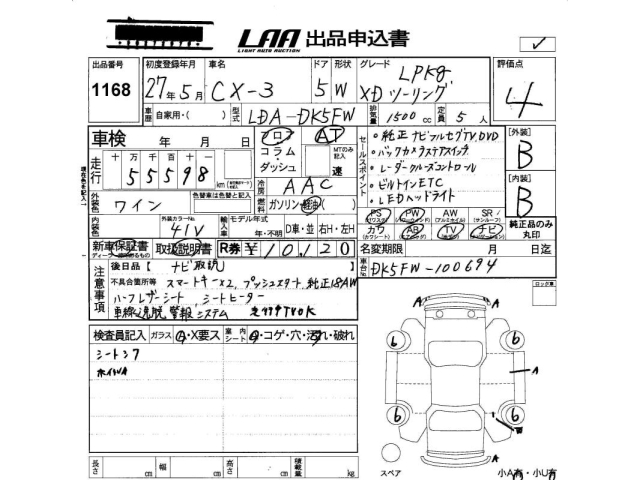 LAA 出品申込書
LIGHT AUTO AUCTION
出品番号 初度登録年月 車名 ドア 形状 グレード 評価点
1168 27年5月 CX-3 5 W LPKg XDツーリング 4
車歴 自家用・( ) 型式 LDA-DK5FW 排気量 1500 cc 定員 5 人
車検 年 月 日 フロア AT
コラム・ダッシュ MTのみ記入 速
走行 十万千百十一
55598 km
外装色 ワイン 色替車は色替と記入
冷房 AAC
燃料 ガソリン・軽油( )
外装カラーNo. 41V
輸入車 モデル年式 年・不明 D車・並 右H・左H
セールスポイント
・純正ナビフルセグTV,DVD
・バックカメラステアスイッチ
・レーダークルーズコントロール
・ビルトインETC
・LEDヘッドライト
【外装】
B
【内装】
B
PS PW AW SR
(パワステ) (パワーウィンド) (アルミホイル) (サンルーフ)
カワ AB TV ナビ
純正品のみ丸印
新車保証書 取扱説明書 R券 ¥10,120
名変期限 月 日迄
車台No. DK5FW-100694
注意事項
後日品【 ナビ取説
不具合箇所等 スマートキーx2, プッシュスタート,純正18AW
ハーフレザーシート シートヒーター
車線逸脱警報システム
ロック車
検査員記入 ガラス A・X要ス 室内シート コゲ・穴・汚れ・破れ
シートシワ
ホイルA
b b A
b b
A
スペア
小A有・小U有
長さ cm 幅 cm 高さ cm 積載量 kg